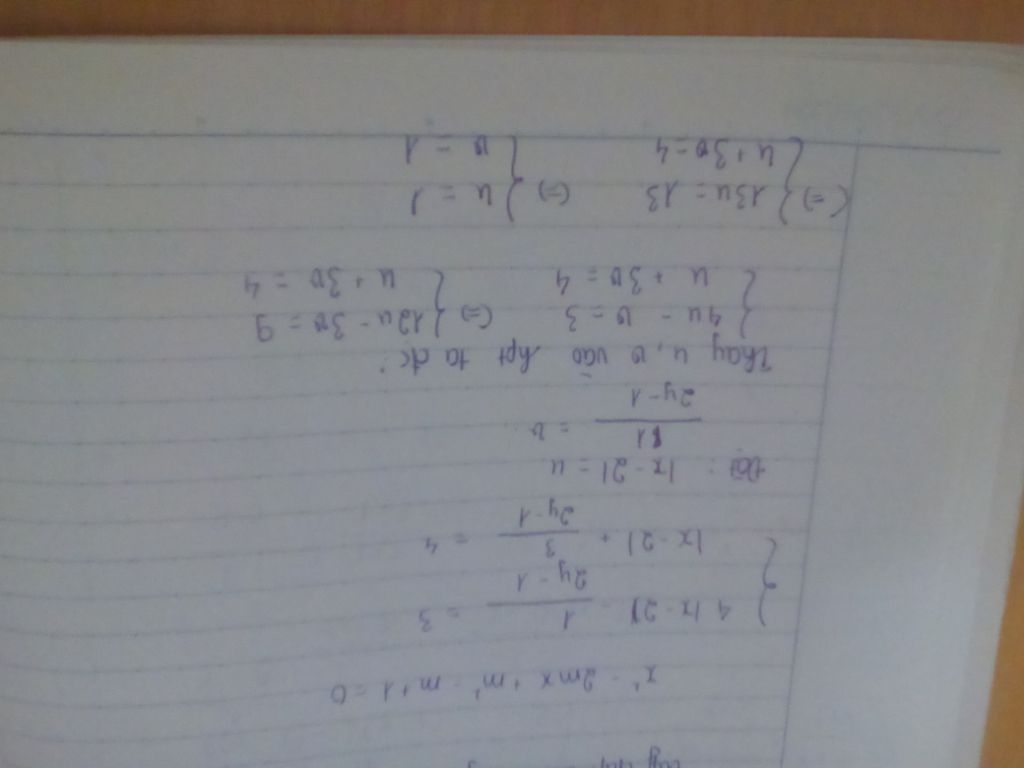 x² - 2mx + m² - m + 1 = 0
{ 4|x-2| - 1/(2y-1) = 3
|x-2| + 3/(2y-1) = 4
Đặt: |x-2| = u
1/(2y-1) = v
Thay u, v vào hpt ta đc:
{ 4u - v = 3 (=) { 12u - 3v = 9
u + 3v = 4 u + 3v = 4
(=) { 13u = 13 (=) { u = 1
u + 3v = 4 v = 1